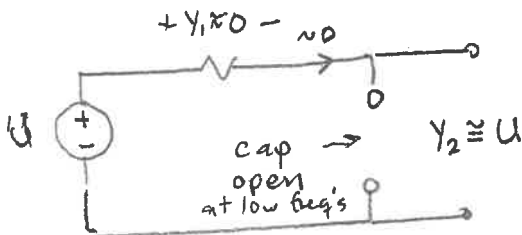 + Y₁≈0 − ≈0
U + −
cap →
open
at low freq's
Y₂ ≅ U